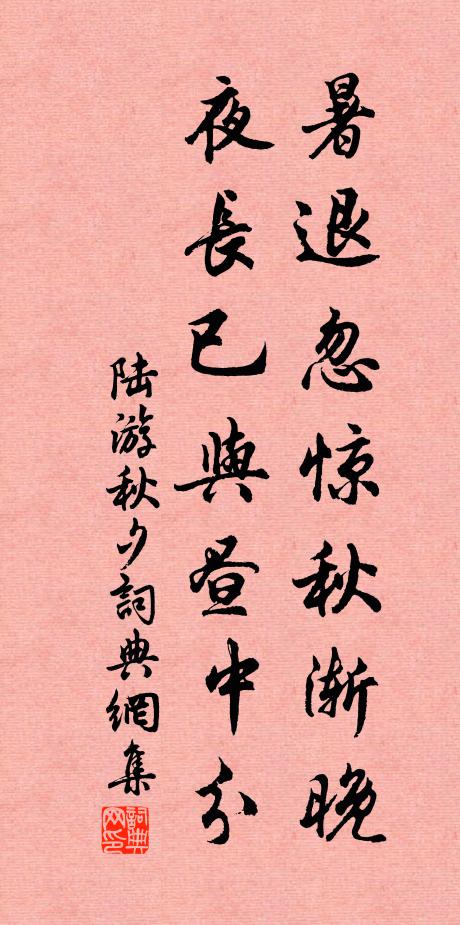 暑退忽惊秋渐晚
夜長已與昼中分
陆游秋夕詞典網集
詞典网印